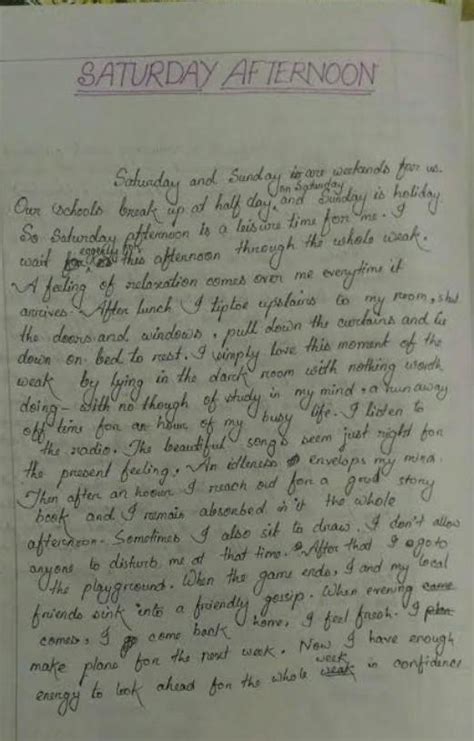 SATURDAY AFTERNOON
Saturday and Sunday is are weekends for us.
on Saturday
Our schools break up at half day, and Sunday is holiday
So Saturday afternoon is a leisure time for me. I
eagerly for
wait this afternoon through the whole weak.
A feeling of relaxation comes over me everytime it
arrives. After lunch I tiptoe upstairs to my room, shut
the doors and windows, pull down the curtains and lie
down on bed to rest. I simply love this moment of the
weak by lying in the dark room with nothing worth
doing - with no though of study in my mind, a run away
off time for an hour of my busy life. I listen to
the radio. The beautiful songs seem just right for
the present feeling. An idleness envelops my mind.
Then after an hour I reach out for a good story
book and I remain absorbed in it the whole
afternoon. Sometimes I also sit to draw. I don't allow
anyone to disturb me at that time. After that I go to
the playground. When the game ends, I and my local
friends sink into a friendly gossip. When evening came
comes, I come back home, I feel fresh. I plan
make plans for the next week. Now I have enough
week
energy to look ahead for the whole weak in confidence